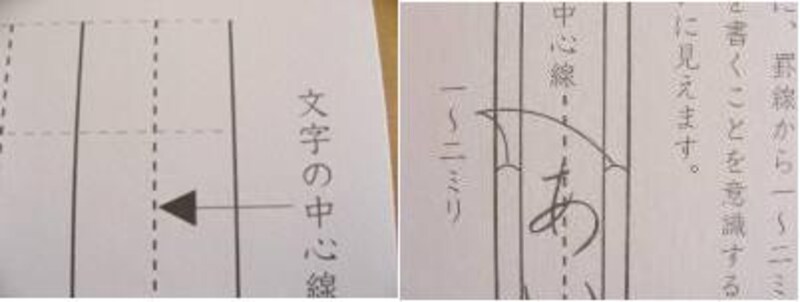 文字の中心線
に、罫線から一〜二ミ
を書くことを意識する
に見えます。
中心線
一〜二ミリ
あ